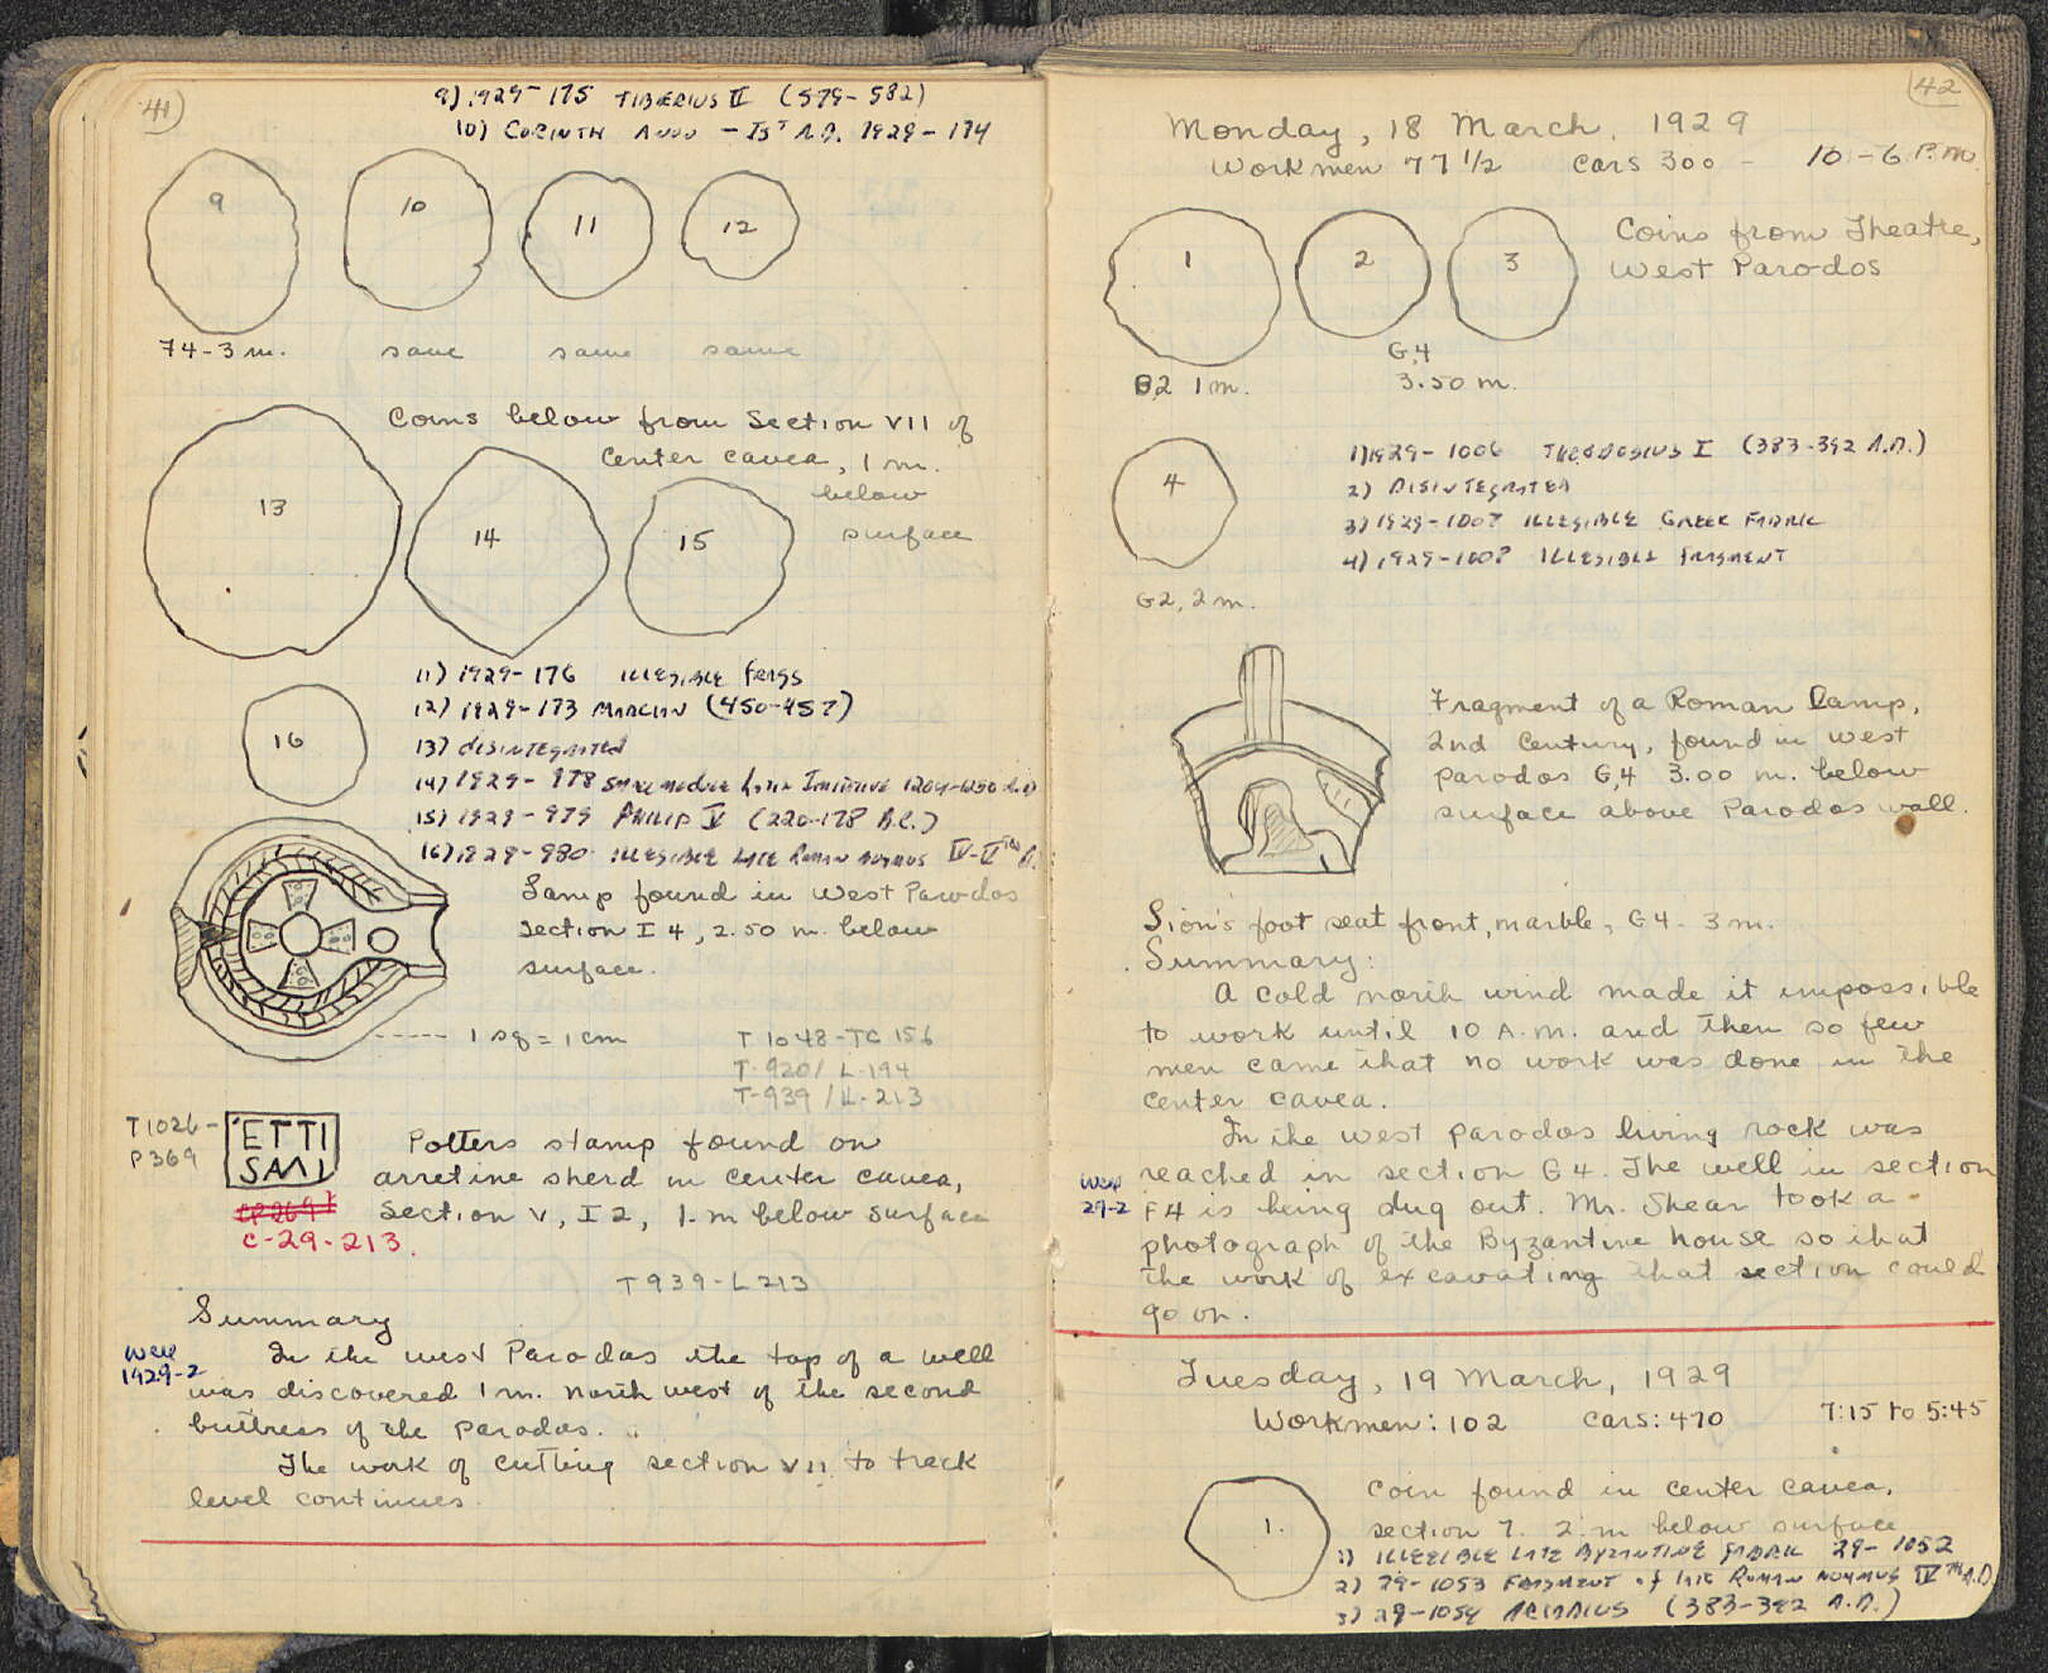 41)
9) 1929-175 TIBERIUS II (579-582)
10) CORINTH - Ist A.D. 1929-174
9
10
11
12
74-3 m.
same
same
same
Coins below from Section VII of
center cavea, 1 m.
below
surface
13
14
15
11) 1929-176 ILLEGIBLE
12) 1929-173 MARCIAN (450-457)
16
13) DISINTEGRATED
14) 1929-978 SMALL MODULE LATIN IMITATIVE 1204-1250 A.D
15) 1929-979 PHILIP V (220-178 B.C.)
16) 1929-980 ILLEGIBLE LATE ROMAN NUMMUS IV-V
Lamp found in West Parodos
section I 4, 2.50 m. below
surface.
1 sq = 1 cm
T 1048-TC 156
T-920/ L-194
T-939 / L-213
T1026-
P369
ETTI
SAMI
Potters stamp found on
arretine sherd in center cavea,
Section V, I 2, 1 m below surface
C-29-213.
T939-L213
Summary
Well
1929-2
In the west Parodos the top of a well
was discovered 1 m. north west of the second
buttress of the parodos.
The work of cutting section VII to track
level continues.
42
Monday, 18 March, 1929
Workmen 77 1/2 Cars 300 - 10-6 P.M.
1
2
3
Coins from Theatre,
West Parodos
G,4
B,2 1 m.
3.50 m.
4
1) 1929-1006 THEODOSIUS I (383-392 A.D.)
2) DISINTEGRATED
3) 1929-1007 ILLEGIBLE GREEK FABRIC
4) 1929-1008 ILLEGIBLE FRAGMENT
G2, 2 m.
Fragment of a Roman Lamp,
2nd Century, found in west
parodos G,4 3.00 m. below
surface above Parodos wall.
Lion's foot seat front, marble, G4-3 m.
Summary:
A cold north wind made it impossible
to work until 10 A.M. and then so few
men came that no work was done in the
center cavea.
In the west parodos living rock was
reached in section G4. The well in section
Well
29-2
F4 is being dug out. Mr. Shear took a
photograph of the Byzantine house so that
the work of excavating that section could
go on.
Tuesday, 19 March, 1929
Workmen: 102 Cars: 470 7:15 to 5:45
1.
Coin found in center cavea,
section 7. 2 m below surface
1) ILLEGIBLE LATE BYZANTINE FABRIC 29-1052
2) 29-1053 FRAGMENT of LATE ROMAN NUMMUS IV TH A.D.
3) 29-1054 ARCADIUS (383-392 A.D.)